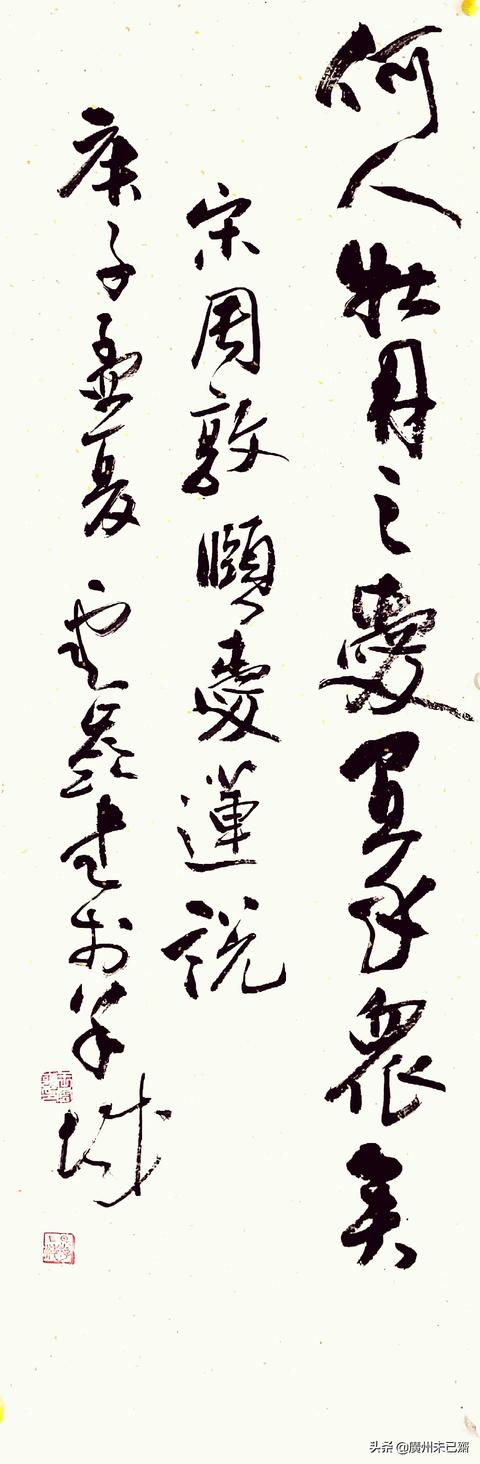 何人牡丹之愛宜乎衆矣
宋周敦頤愛蓮説
庚子孟夏書於羊城
头条 @廣州未已齋